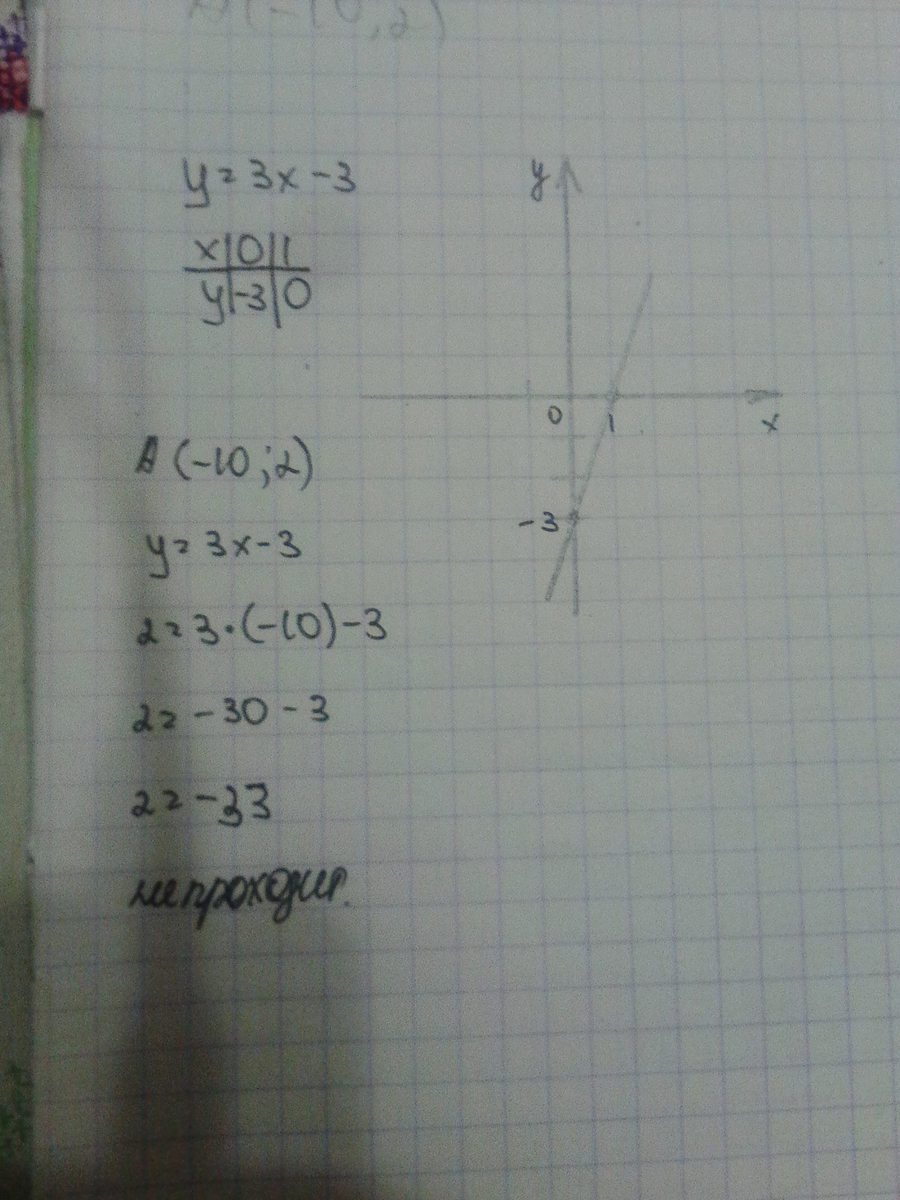 y=3x-3
x|0|1
y|-3|0
y
0
1
x
-3
A(-10;2)
y=3x-3
2=3·(-10)-3
2=-30-3
2=-33
не проходит.